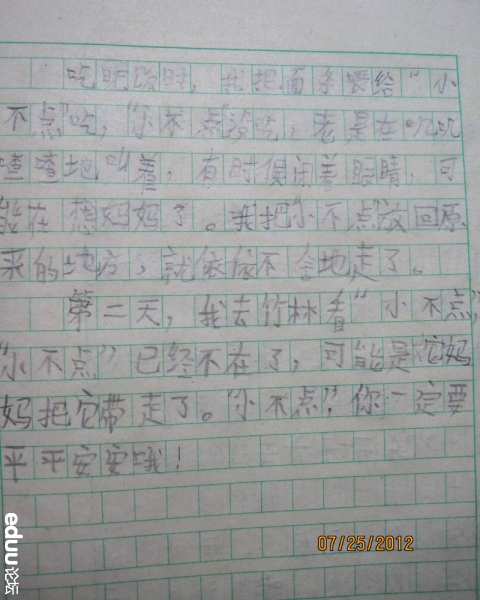 吃明饭时，我把面条喂给“小
不点”吃，“小不点”没吃，老是在叽叽
喳喳地叫着，有时候闭着眼睛，可
能在想妈妈了。我把“小不点”放回原
来的地方，就依依不舍地走了。
第二天，我去竹林看“小不点”，
“小不点”已经不在了，可能是它妈
妈把它带走了。“小不点”，你一定要
平平安安哦！
07/25/2012
eduu论坛